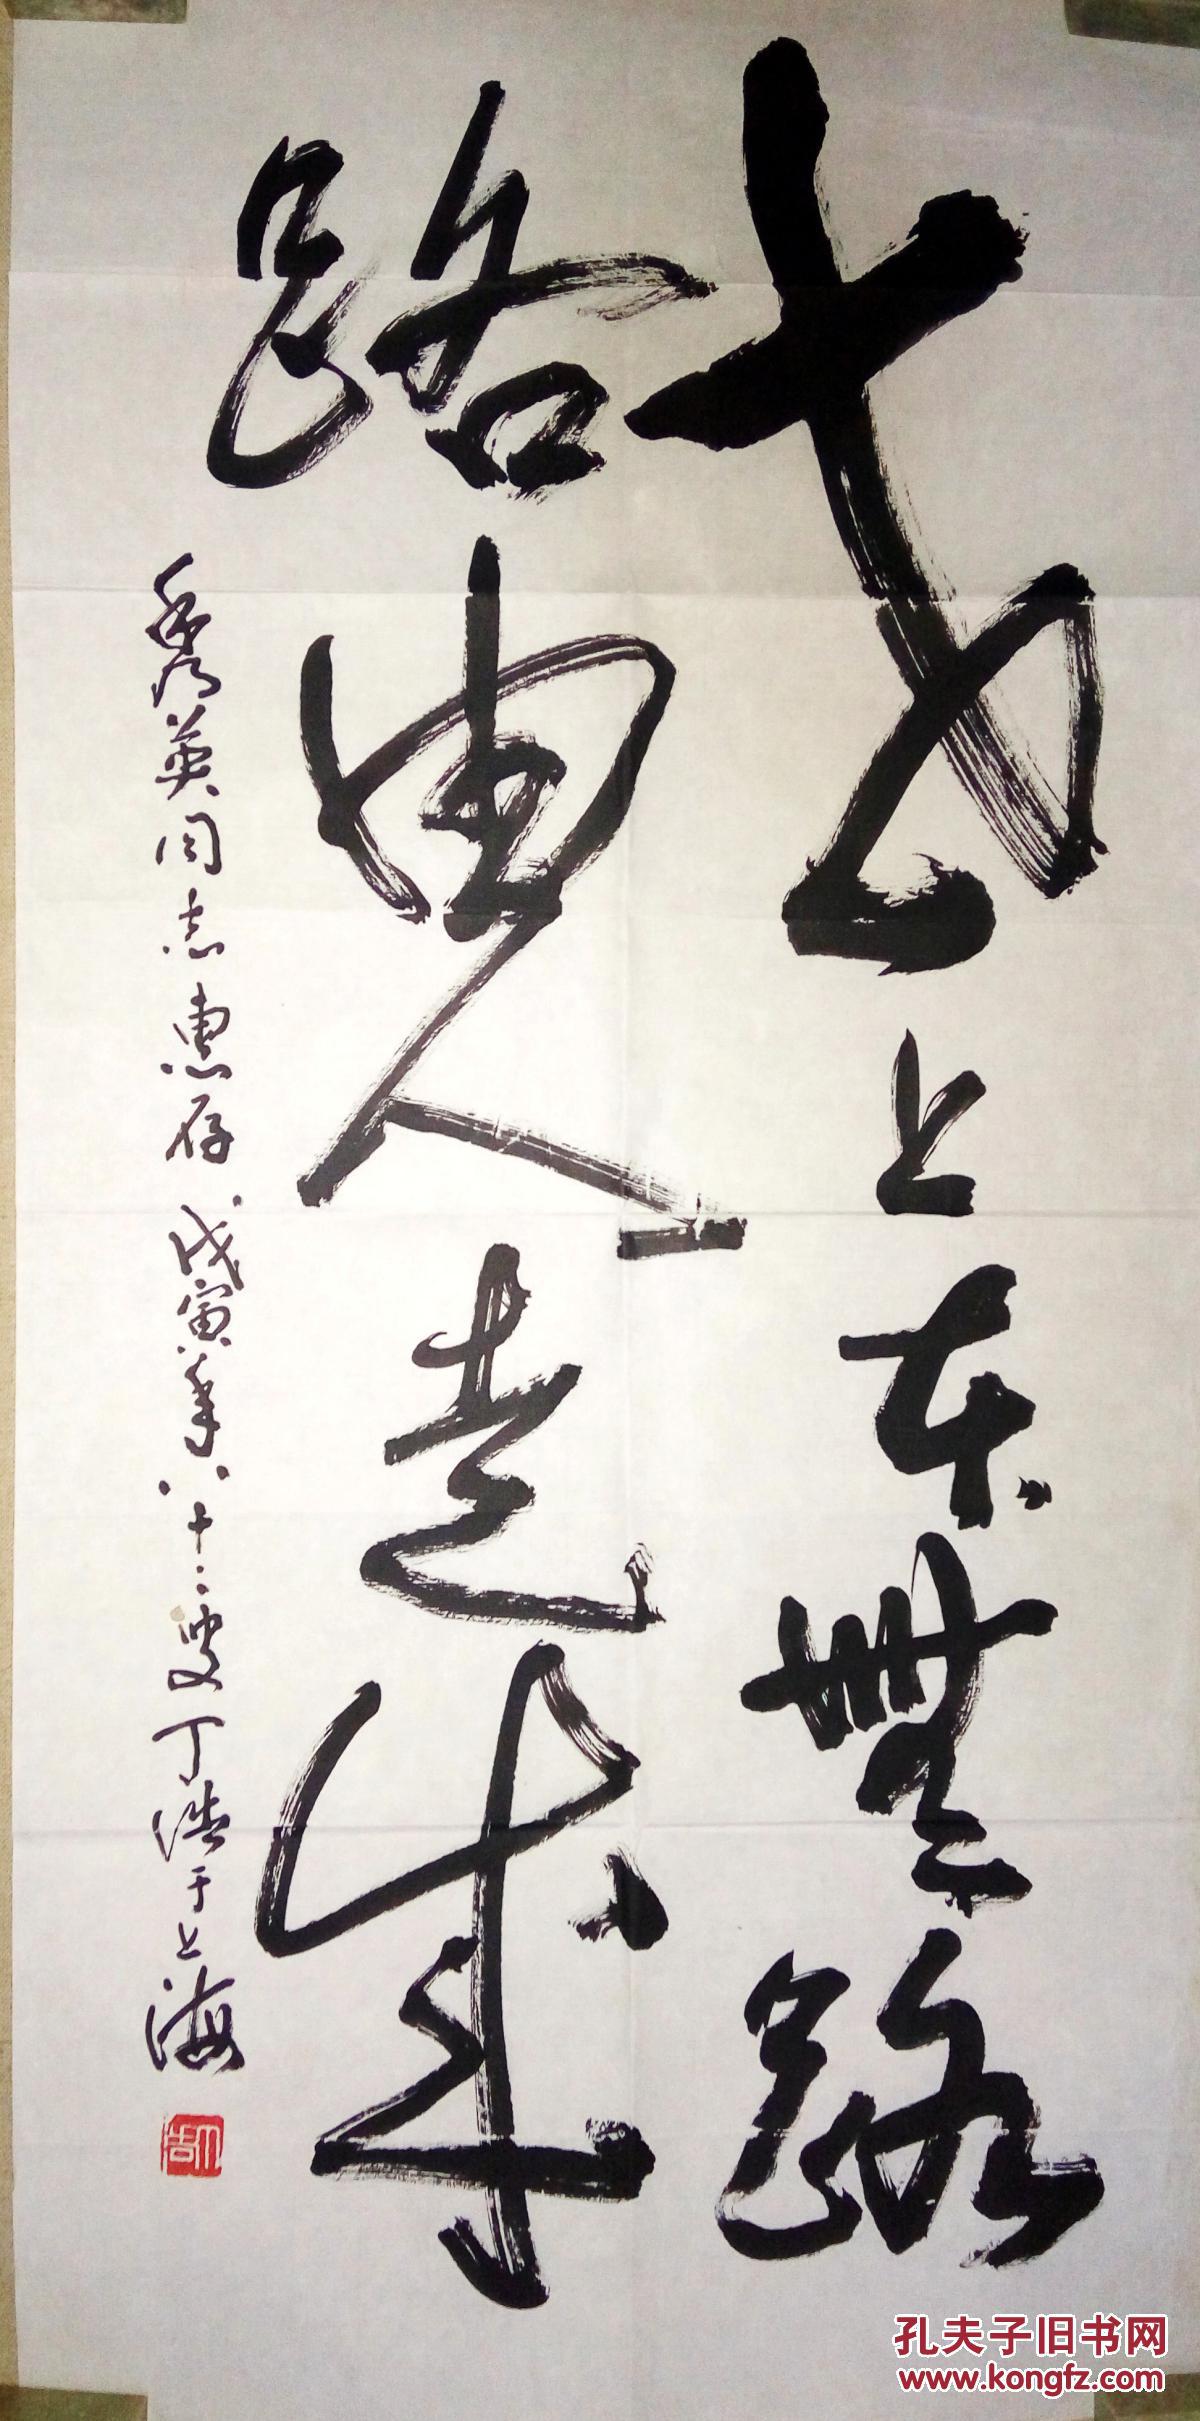 世上本無路
路由人走成
秀英同志惠存 戊寅年八十二叟丁浩于上海
丁浩
孔夫子旧书网
www.kongfz.com